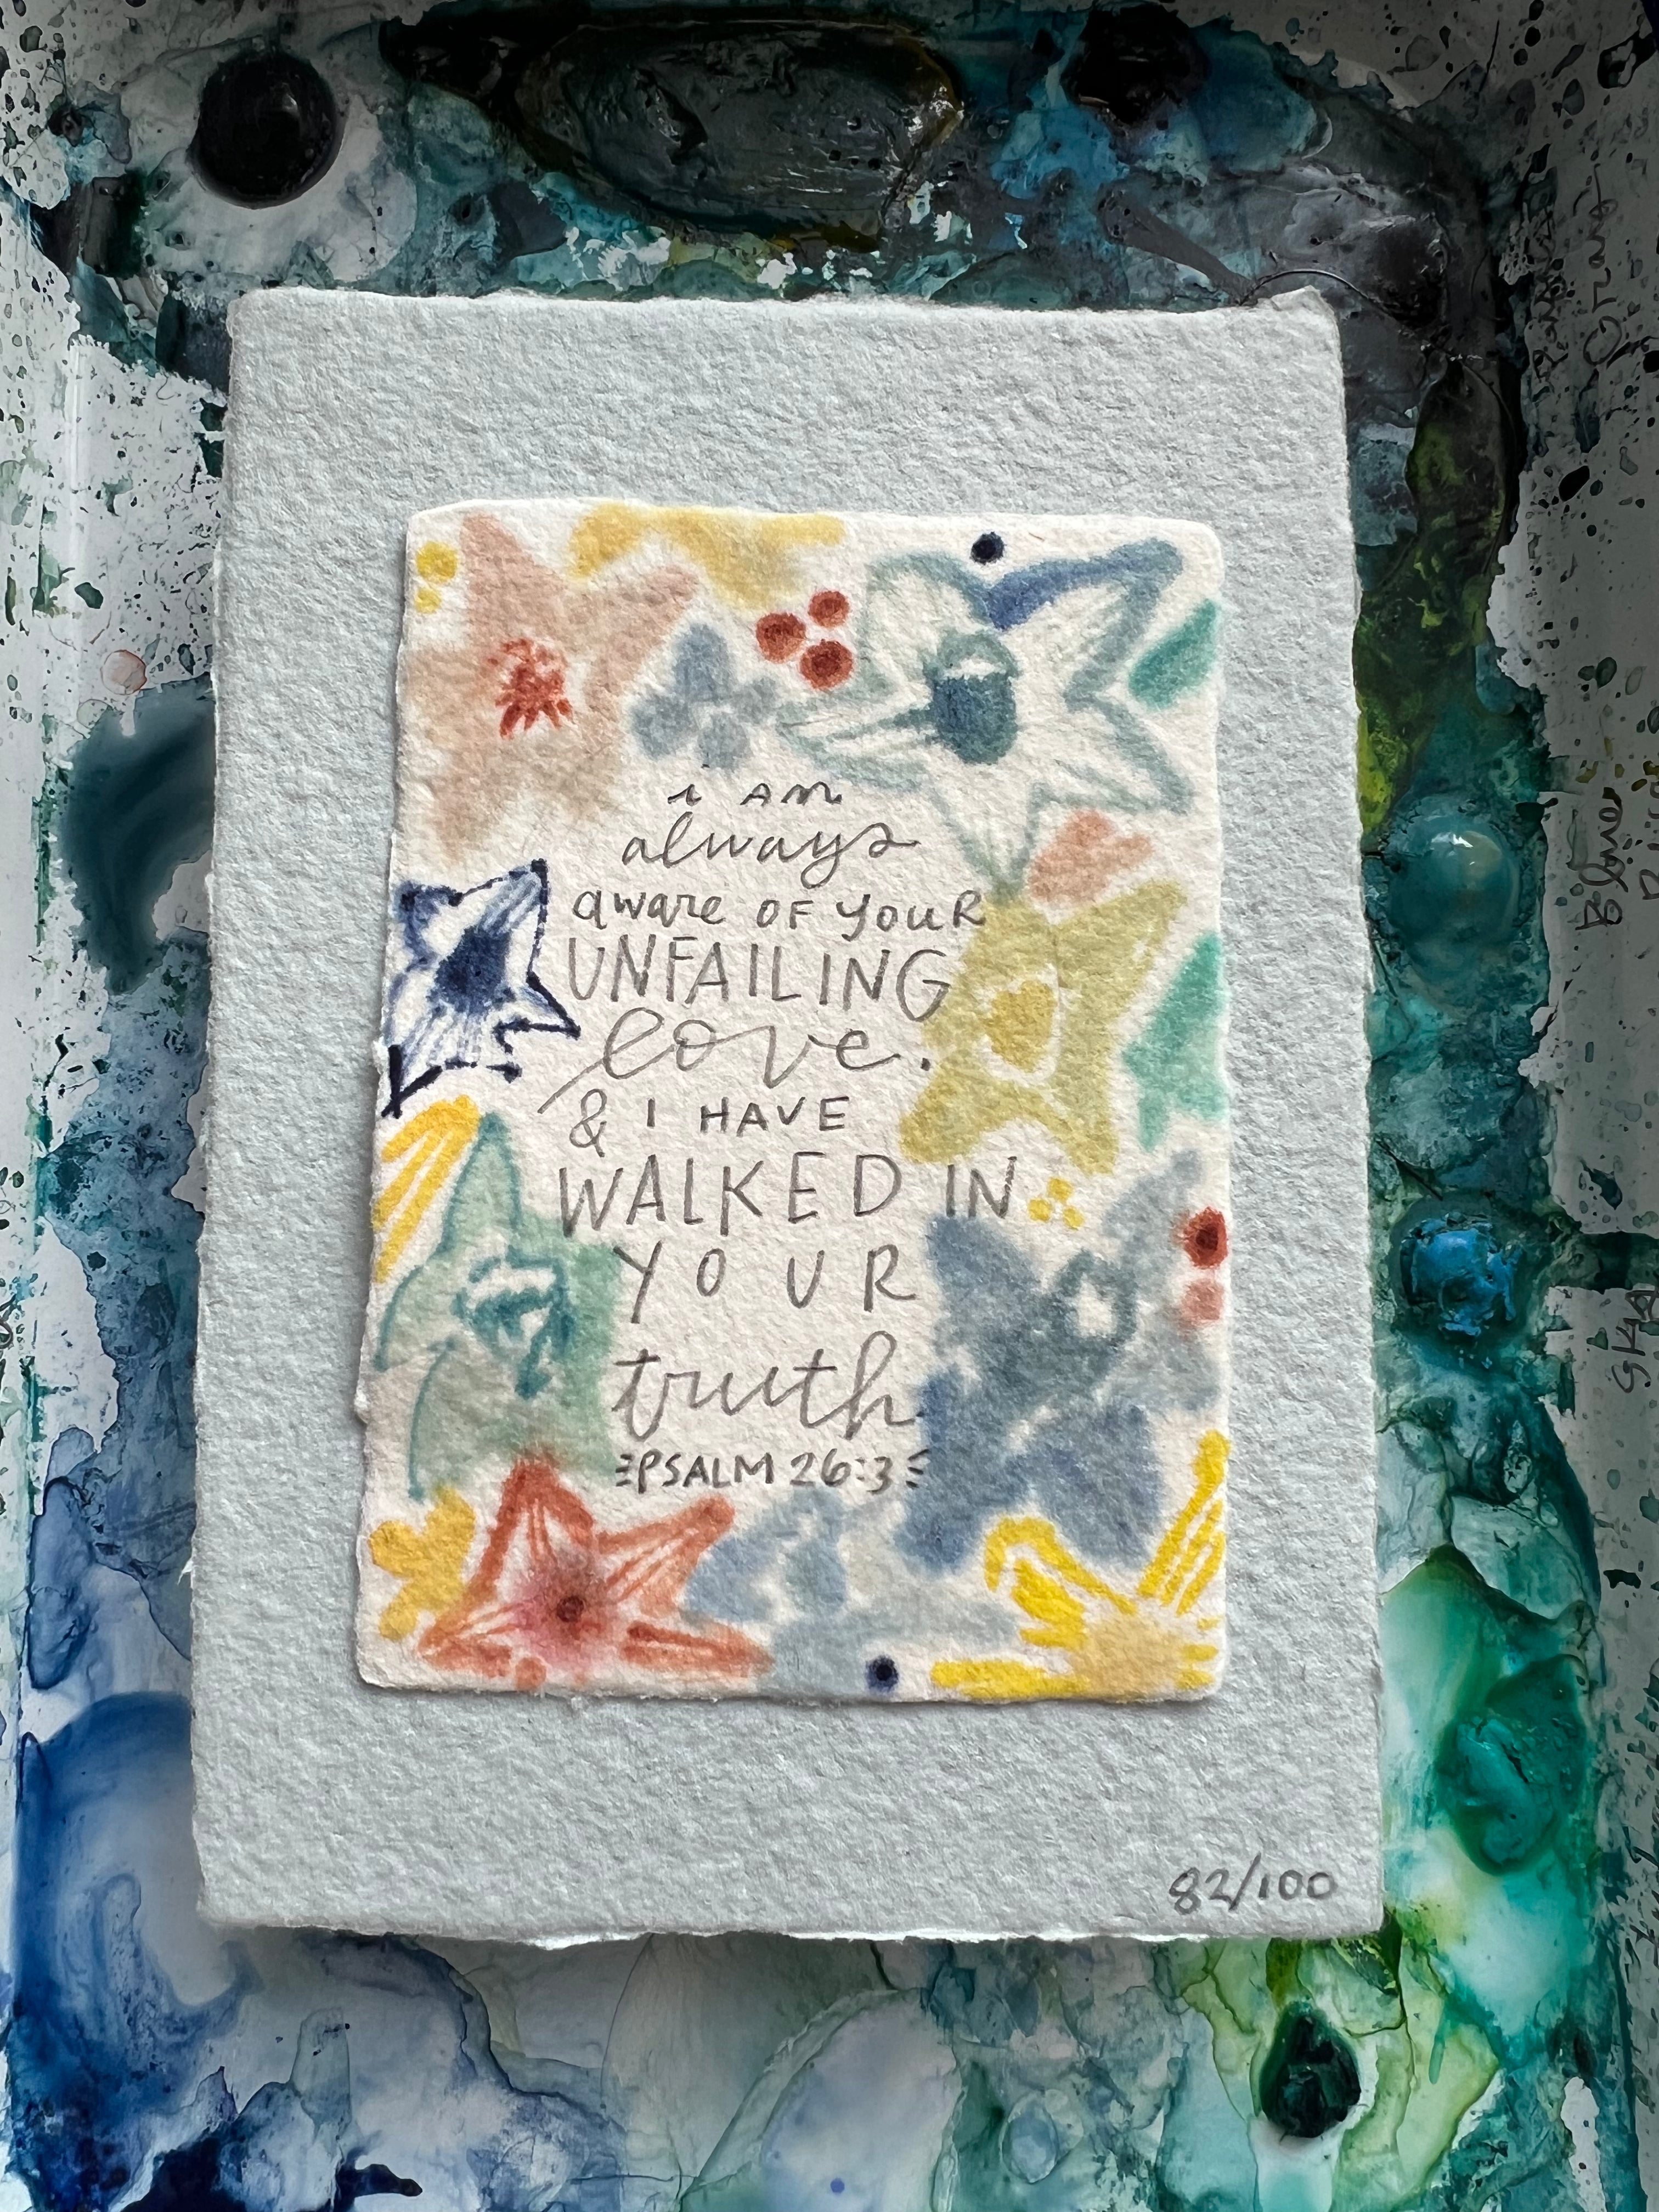 i am
always
aware of your
UNFAILING
love.
& I HAVE
WALKED IN
YOUR
truth.
PSALM 26:3
82/100